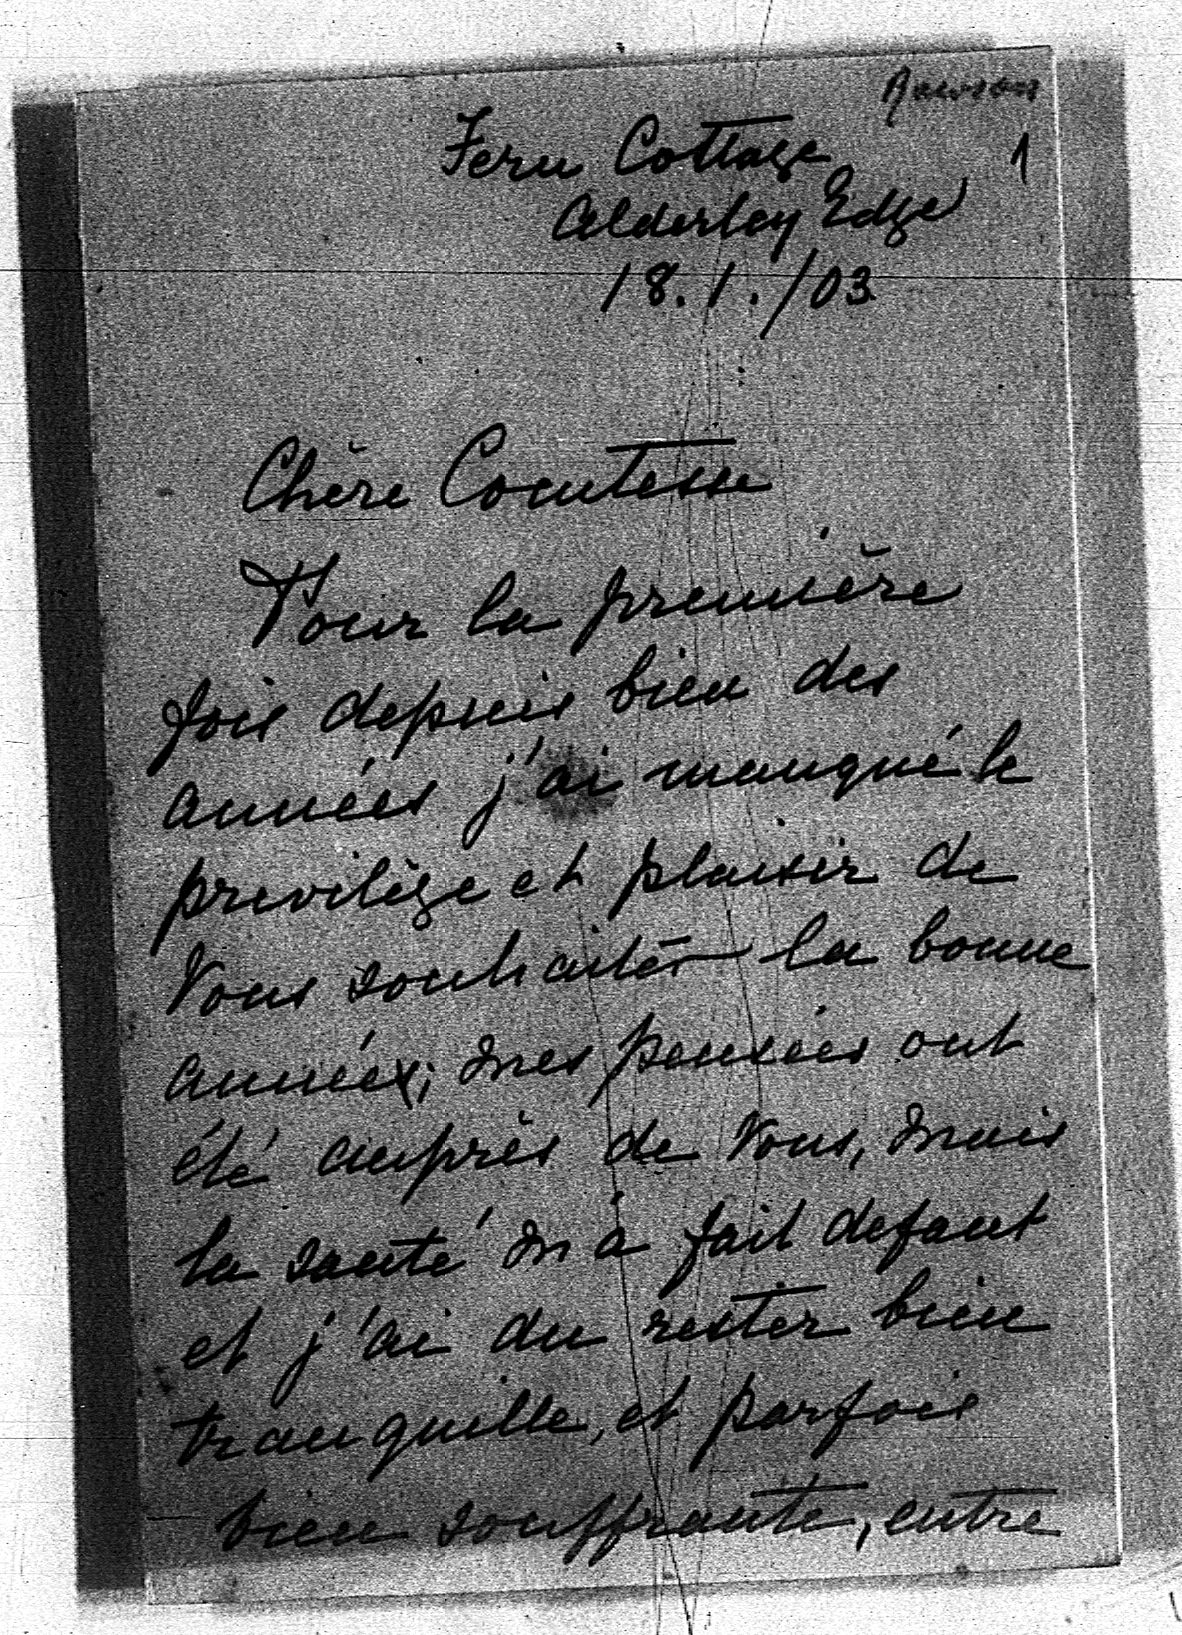 Rawson
1
Fern Cottage
Alderley Edge
18.1./03
Chère Comtesse
Pour la première
fois depuis bien des
années j'ai manqué le
privilège et plaisir de
Vous souhaiter la bonne
année; mes pensées ont
été auprès de Vous, mais
la santé m'a fait defaut
et j'ai du rester bien
tranquille, et parfois
bien souffrante, entre